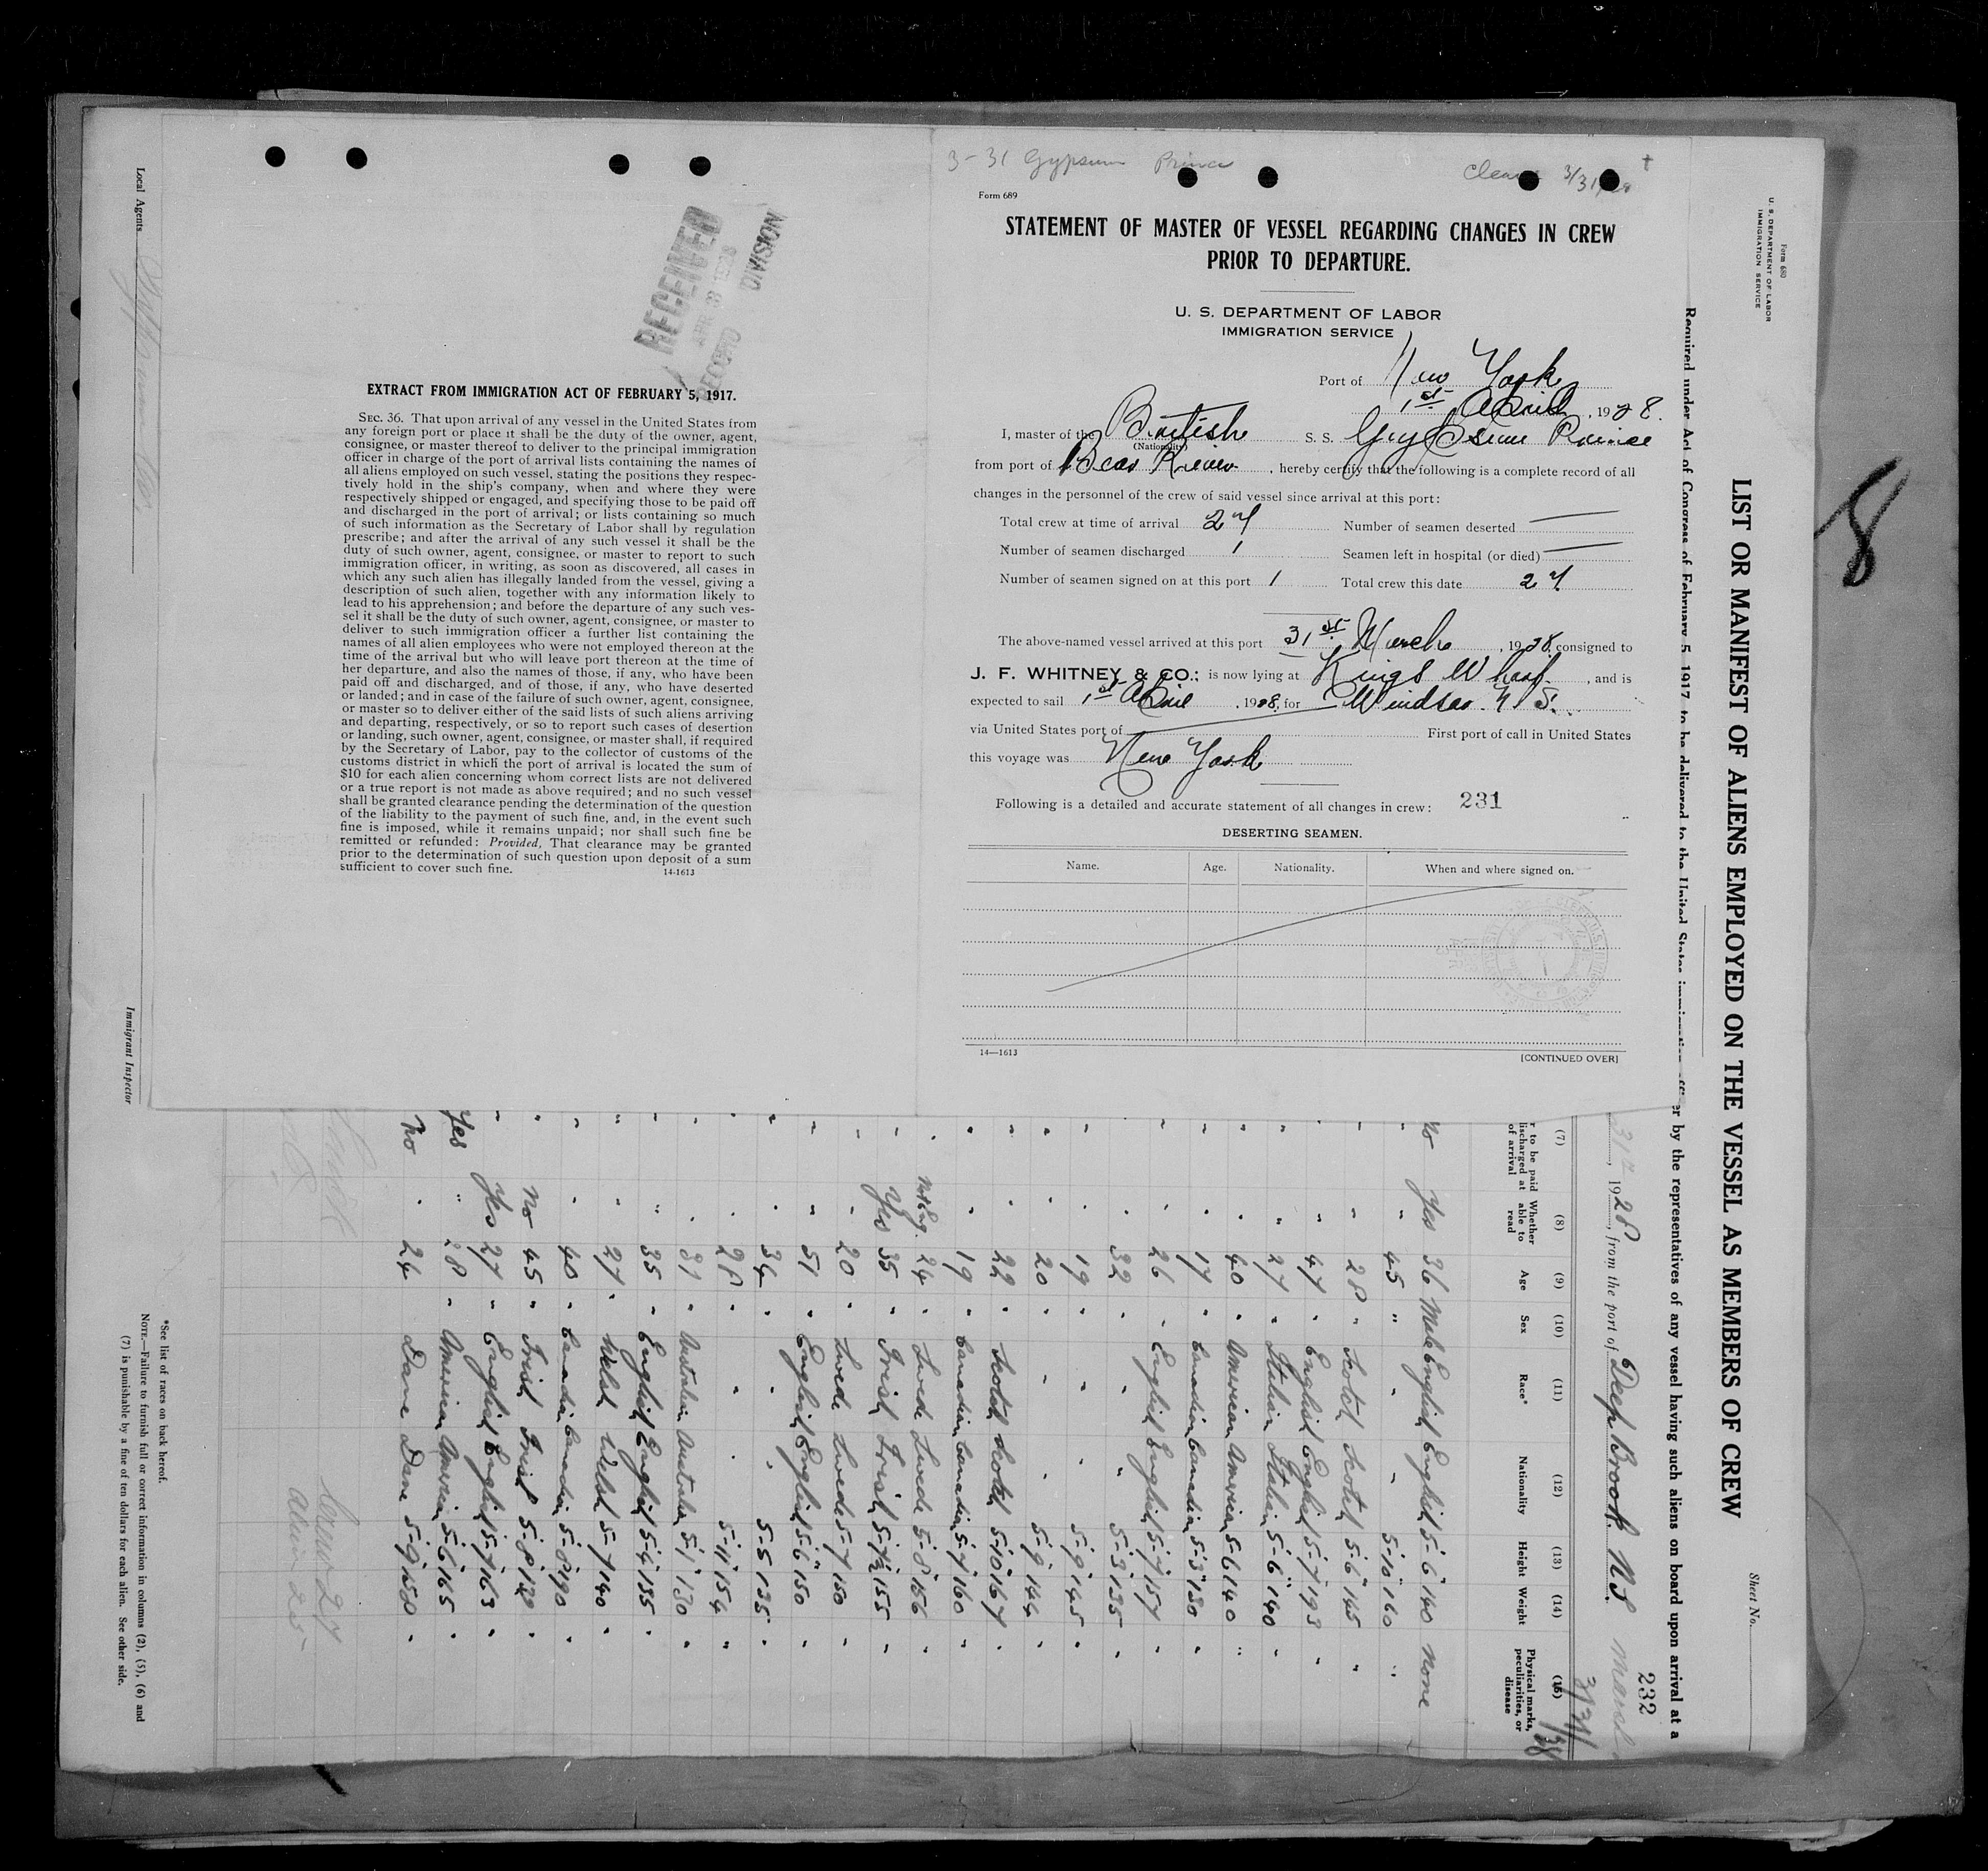 3-31 Gypsum Prince
3/31/28
Form 689
STATEMENT OF MASTER OF VESSEL REGARDING CHANGES IN CREW
PRIOR TO DEPARTURE.
U. S. DEPARTMENT OF LABOR
IMMIGRATION SERVICE
Port of New York
1st April, 1928.
I, master of the British S. S. Gypsum Prince
(Nationality)
from port of Bear River, hereby certify that the following is a complete record of all
changes in the personnel of the crew of said vessel since arrival at this port:
Total crew at time of arrival 27 Number of seamen deserted —
Number of seamen discharged 1 Seamen left in hospital (or died) —
Number of seamen signed on at this port 1 Total crew this date 27
The above-named vessel arrived at this port 31st March, 1928, consigned to
J. F. WHITNEY & CO.; is now lying at Kings Wharf, and is
expected to sail 1st April, 1928, for Windsor N S.
via United States port of — First port of call in United States
this voyage was New York
Following is a detailed and accurate statement of all changes in crew: 231
DESERTING SEAMEN.
Name. Age. Nationality. When and where signed on.
14—1613 [CONTINUED OVER]
RECEIVED
RECORD DIVISION
EXTRACT FROM IMMIGRATION ACT OF FEBRUARY 5, 1917.
SEC. 36. That upon arrival of any vessel in the United States from
any foreign port or place it shall be the duty of the owner, agent,
consignee, or master thereof to deliver to the principal immigration
officer in charge of the port of arrival lists containing the names of
all aliens employed on such vessel, stating the positions they respec-
tively hold in the ship's company, when and where they were
respectively shipped or engaged, and specifying those to be paid off
and discharged in the port of arrival; or lists containing so much
of such information as the Secretary of Labor shall by regulation
prescribe; and after the arrival of any such vessel it shall be the
duty of such owner, agent, consignee, or master to report to such
immigration officer, in writing, as soon as discovered, all cases in
which any such alien has illegally landed from the vessel, giving a
description of such alien, together with any information likely to
lead to his apprehension; and before the departure of any such ves-
sel it shall be the duty of such owner, agent, consignee, or master to
deliver to such immigration officer a further list containing the
names of all alien employees who were not employed thereon at the
time of the arrival but who will leave port thereon at the time of
her departure, and also the names of those, if any, who have been
paid off and discharged, and of those, if any, who have deserted
or landed; and in case of the failure of such owner, agent, consignee,
or master so to deliver either of the said lists of such aliens arriving
and departing, respectively, or so to report such cases of desertion
or landing, such owner, agent, consignee, or master shall, if required
by the Secretary of Labor, pay to the collector of customs of the
customs district in which the port of arrival is located the sum of
$10 for each alien concerning whom correct lists are not delivered
or a true report is not made as above required; and no such vessel
shall be granted clearance pending the determination of the question
of the liability to the payment of such fine, and, in the event such
fine is imposed, while it remains unpaid; nor shall such fine be
remitted or refunded: Provided, That clearance may be granted
prior to the determination of such question upon deposit of a sum
sufficient to cover such fine.
14-1613
8
Form 680
U. S. DEPARTMENT OF LABOR
IMMIGRATION SERVICE
Sheet No.
LIST OR MANIFEST OF ALIENS EMPLOYED ON THE VESSEL AS MEMBERS OF CREW
Required under Act of Congress of February 5, 1917, to be delivered to the United States immigration officer by the representatives of any vessel having such aliens on board upon arrival at a
232
1928, from the port of Deep Brook. NS. March
3/31/28
(7) (8) (9) (10) (11) (12) (13) (14) (15)
r to be paid discharged at of arrival
Whether able to read
Age
Sex
Race*
Nationality
Height
Weight
Physical marks, peculiarities, or disease
no Yes 36 Male English English 5-6 140 none
" " 45 " " " 5-10 160 "
" " 28 " Scotch Scotch 5-6 145 "
" " 47 " English English 5-7 193 "
" " 27 " Italian Italian 5-6 140 "
" " 40 " American American 5-6 140 "
" " 17 " Canadian Canadian 5-3 130 "
" " 26 " English English 5-7 157 "
" " 32 " " " 5-3 135 "
" " 19 " " " 5-9 145 "
" " 20 " " " 5-9 144 "
" " 22 " Scotch Scotch 5-10 167 "
" " 19 " Canadian Canadian 5-7 160 "
" Not Eng. 24 " Swede Swede 5-8 156 "
" Yes 35 " Irish Irish 5-7½ 155 "
" " 20 " Swede Swede 5-7 150 "
" " 51 " English English 5-6 150 "
" " 34 " " " 5-5 135 "
" " 28 " " " 5-11 154 "
" " 31 " Australian Australia 5-1 130 "
" " 35 " English English 5-4 135 "
" " 27 " Welsh Welsh 5-7 140 "
" " 40 " Canadian Canadian 5-8 190 "
" No 45 " Irish Irish 5-8 "
" Yes 27 " English English 5-7 163 "
Yes " 28 " American American 5-6 165 "
no " 24 " Dane Dane 5-9 150 "
Crew 27
Alien 25
*See list of races on back hereof.
NOTE.—Failure to furnish full or correct information in columns (2), (5), (6) and
(7) is punishable by a fine of ten dollars for each alien. See other side.
Local Agents
Immigrant Inspector